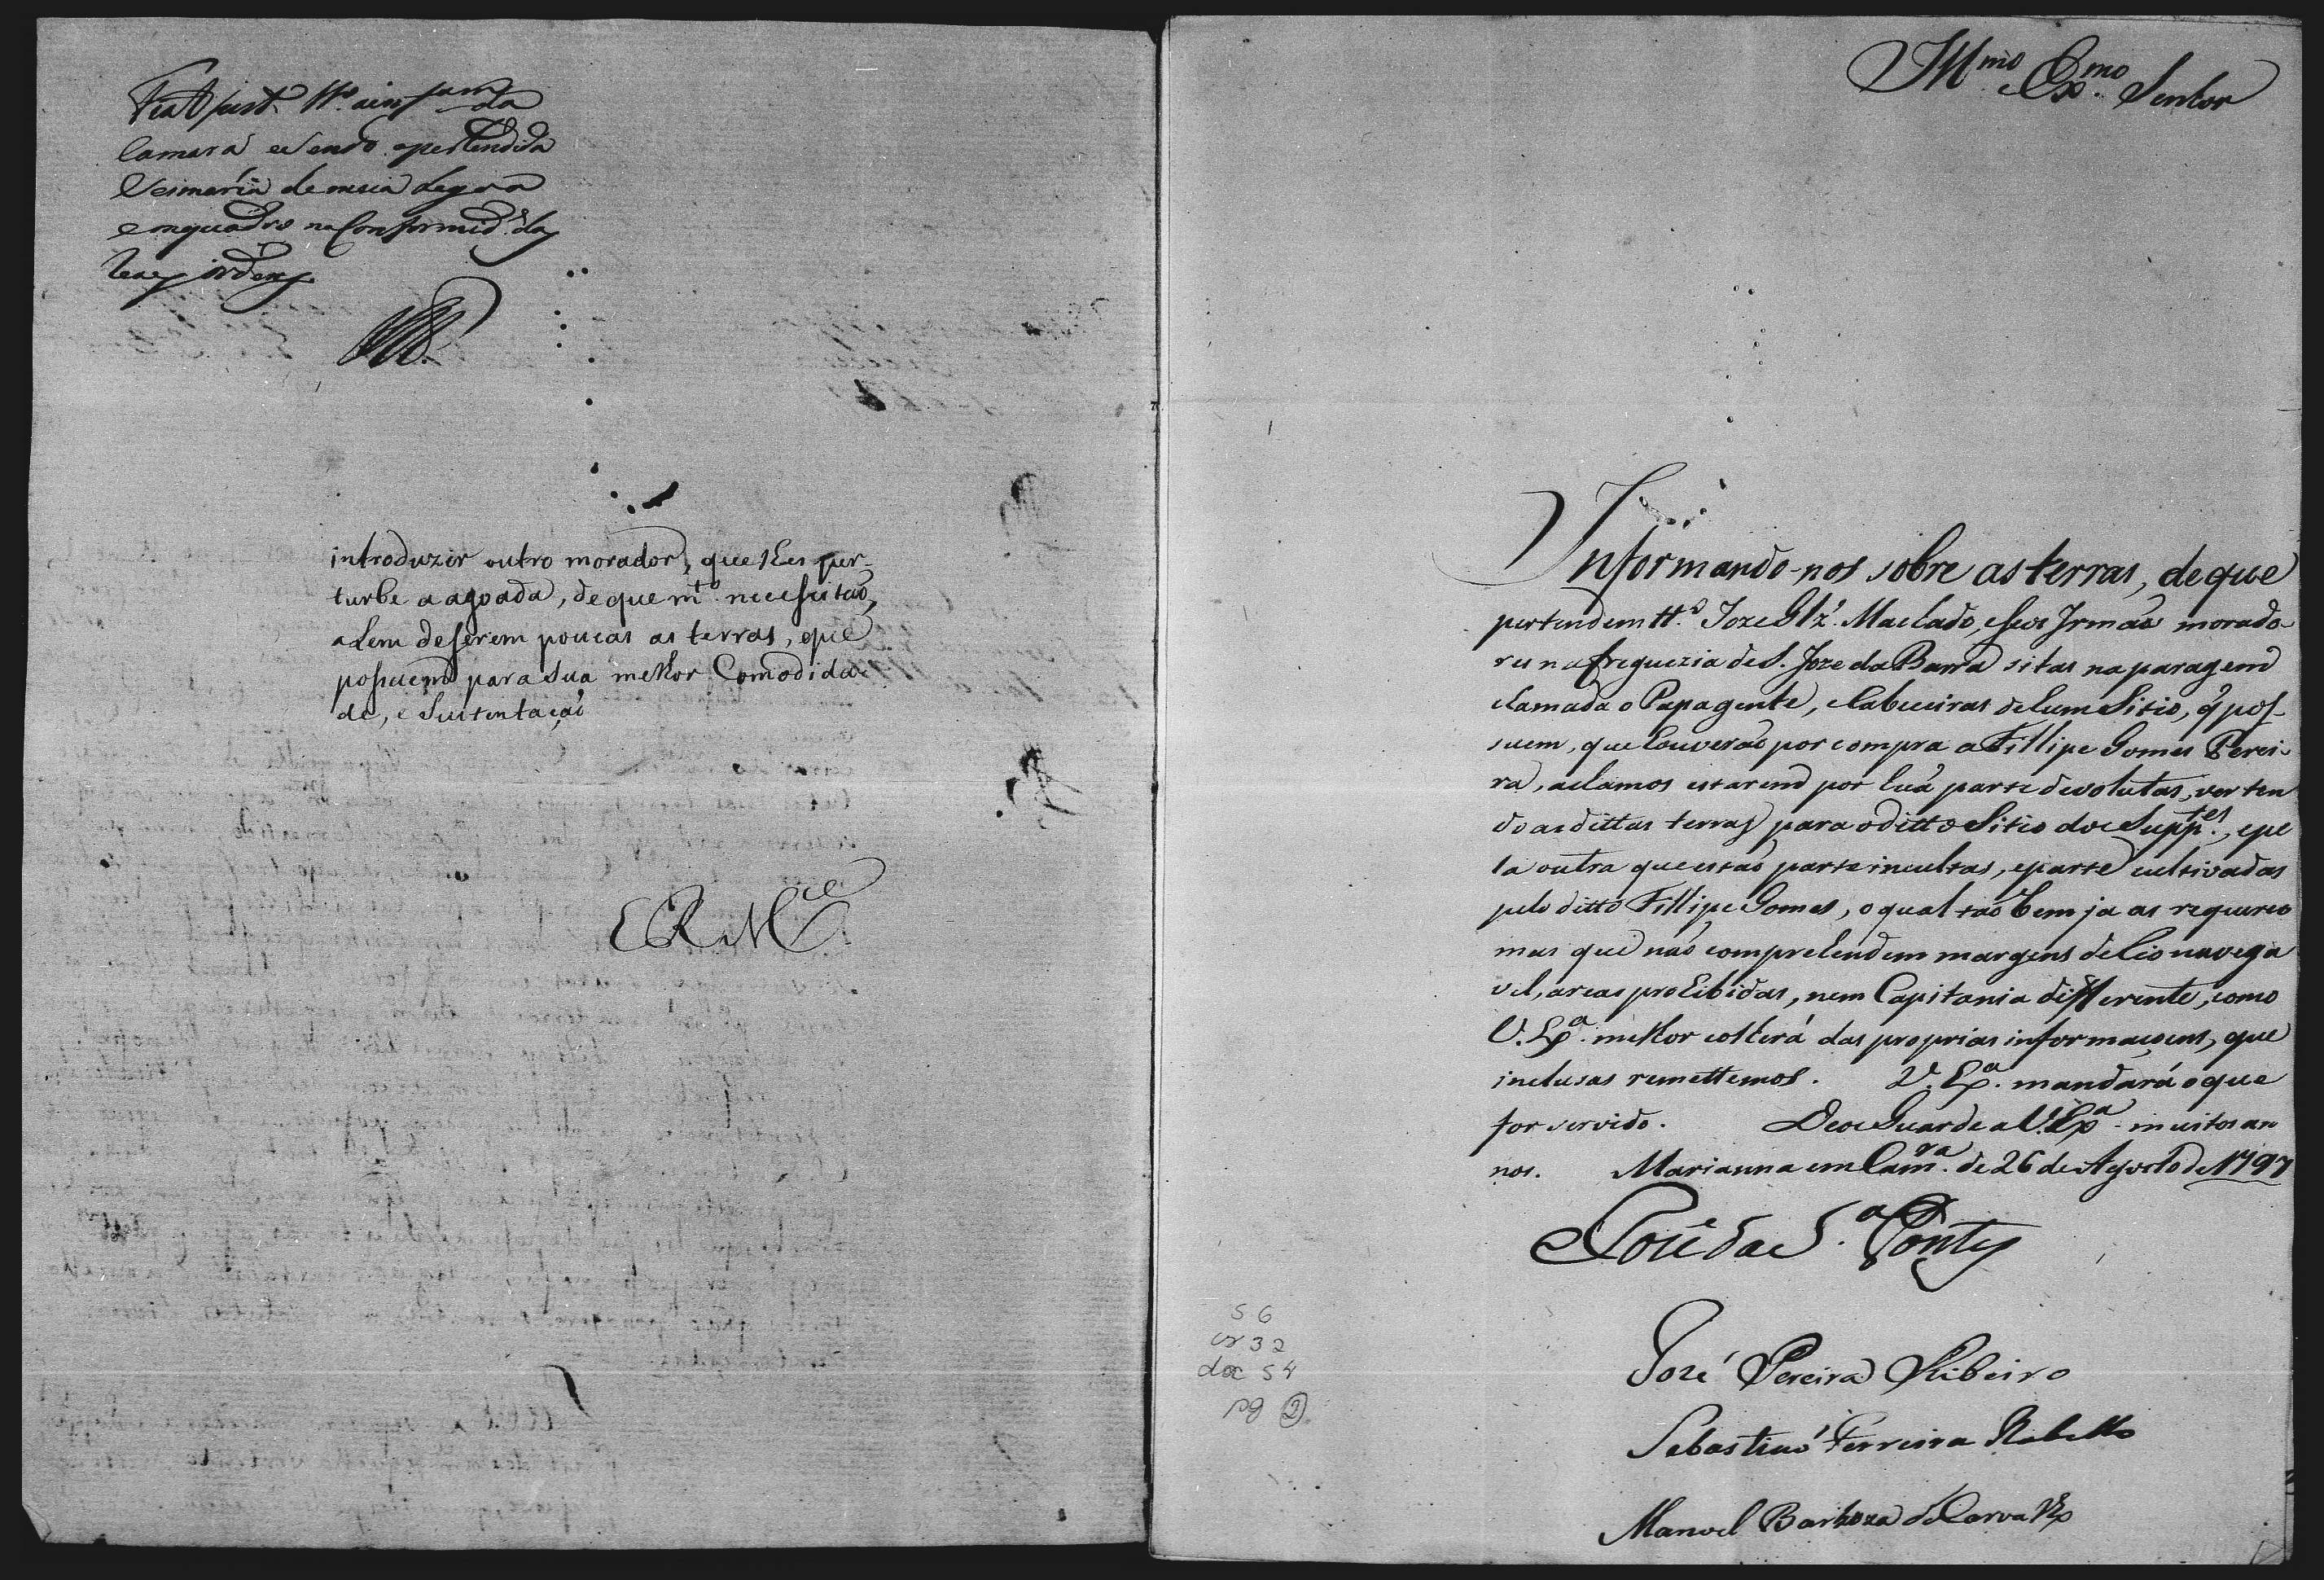 Camara e sendo a pertendida
Sesmaria de meia legoa
em quadro na Conformid.e das
Reaes ordens
introduzir outro morador, que lhes per-
turbe a agoada, de que m.to necessitaõ,
alem de serem poucas as terras, que
possuem para sua melhor Comodida-
de, e Sustentaçaõ
E R M.ce
Ill.mo e Ex.mo Senhor
Informando-nos sobre as terras, de que
pertendem tt.o Joze Glz. Machado, e seos Irmaõs morado-
res na freguezia de S. Joze da Barra sitas na paragem
chamada o Papagente, e Cabeceiras de hum Sitio, q̃ pos-
suem, que houveraõ por compra a Fillipe Gomes Perei-
ra, achamos estarem por huã parte devolutas, verten
do as dittas terras para o ditto Sitio dos Supp.tes, e pe
la outra que estaõ parte incultas, e parte cultivadas
pelo ditto Fillipe Gomes, o qual taõ bem ja as requereo
mas que naõ comprehendem margens de Rio navega
vel, areas prohibidas, nem Capitania differente, como
V. Ex.a melhor colherá das proprias informaçoens, que
inclusas remettemos. V. Ex.a mandará o que
for servido. Deos Guarde a V. Ex.a muitos an
nos. Marianna em Cam.ra de 26 de Agosto de 1797
José da S.a Pontes
Jozé Pereira Ribeiro
Sebastiaõ Ferreira Rabello
Manoel Barboza de Carvalho
S 6
cx 32
doc 54
pg 2